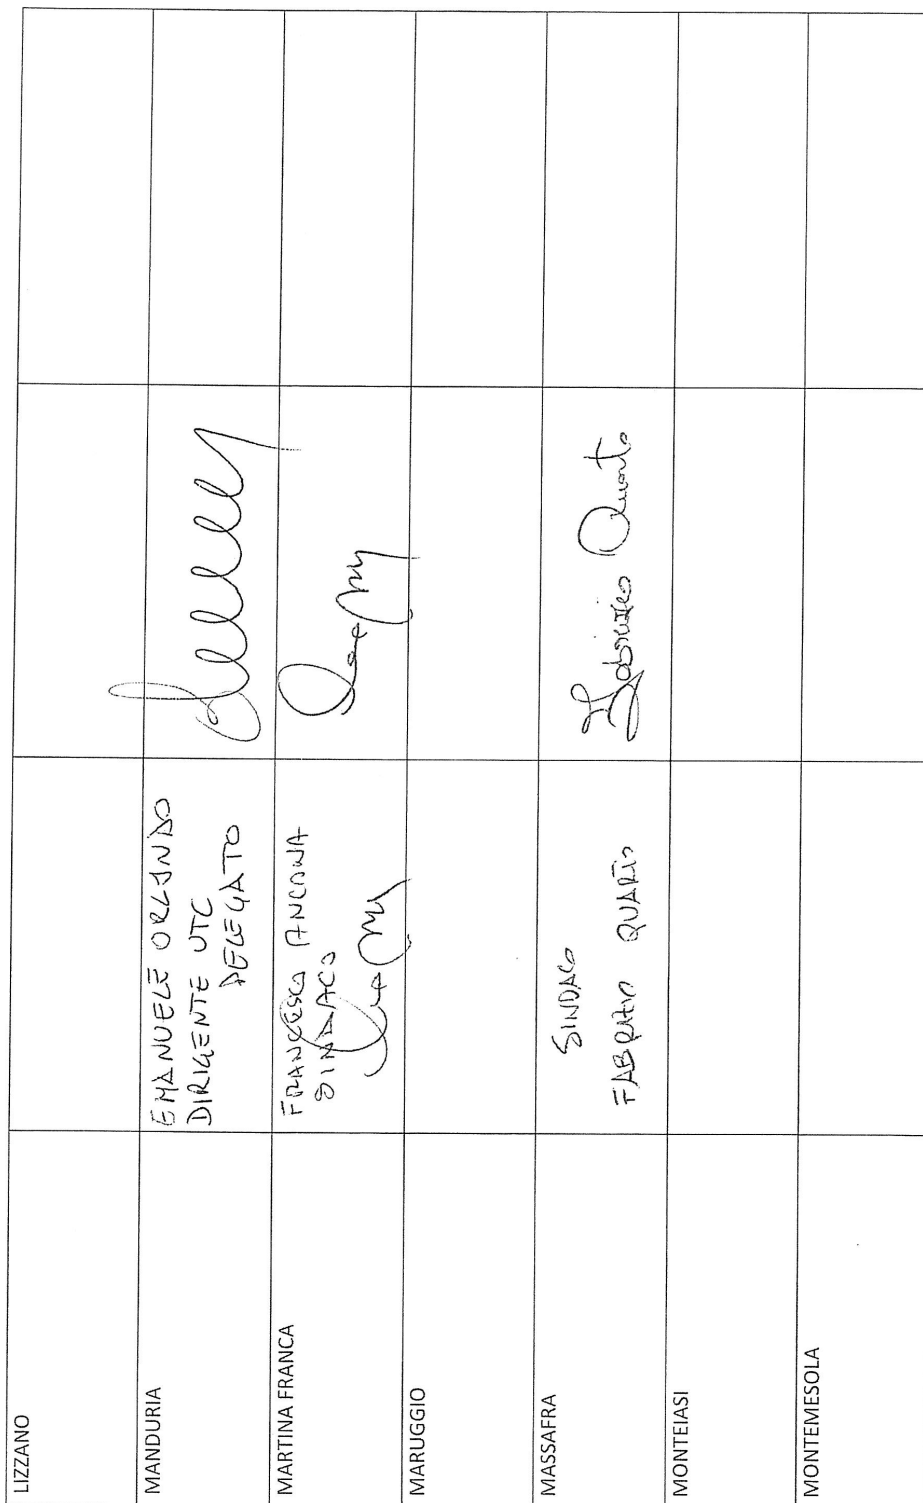 LIZZANO
MANDURIA
EMANUELE ORLANDO
DIRIGENTE UTC
DELEGATO
MARTINA FRANCA
FRANCESCO ANCONA
SINDACO
MARUGGIO
MASSAFRA
SINDACO
FABRIZIO QUARTO
Fabrizio Quarto
MONTEIASI
MONTEMESOLA